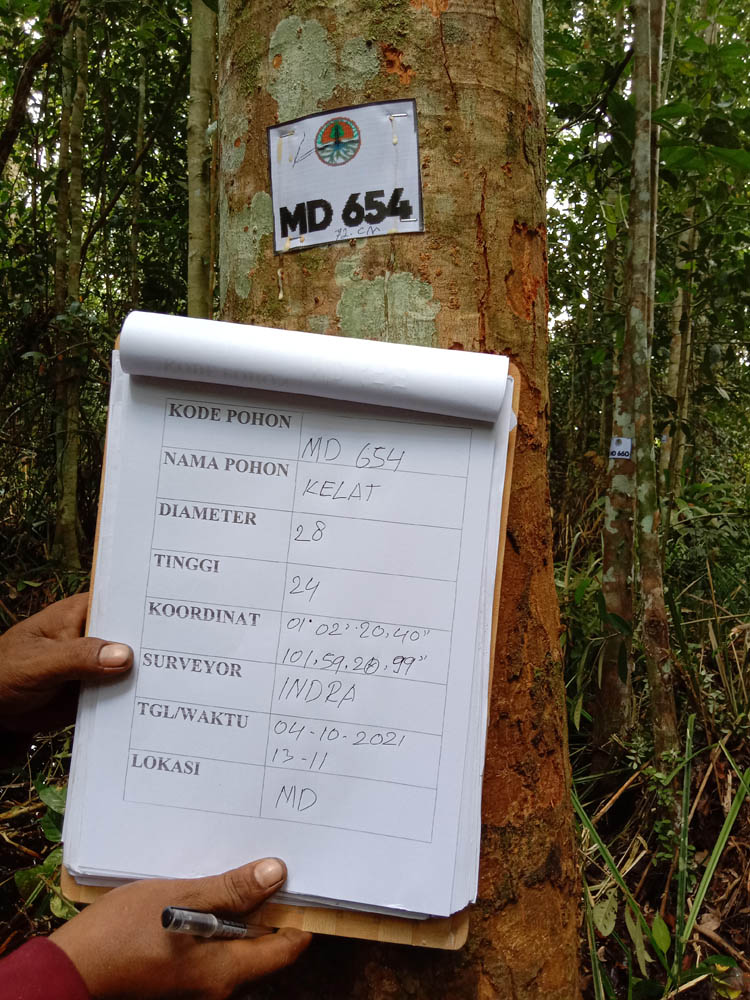 MD 654
72. CM
KODE POHON MD 654
NAMA POHON KELAT
DIAMETER 28
TINGGI 24
KOORDINAT 01° 02'. 20,40"
101,59,20,99"
SURVEYOR INDRA
TGL/WAKTU 04-10-2021
13-11
LOKASI MD
MD 660